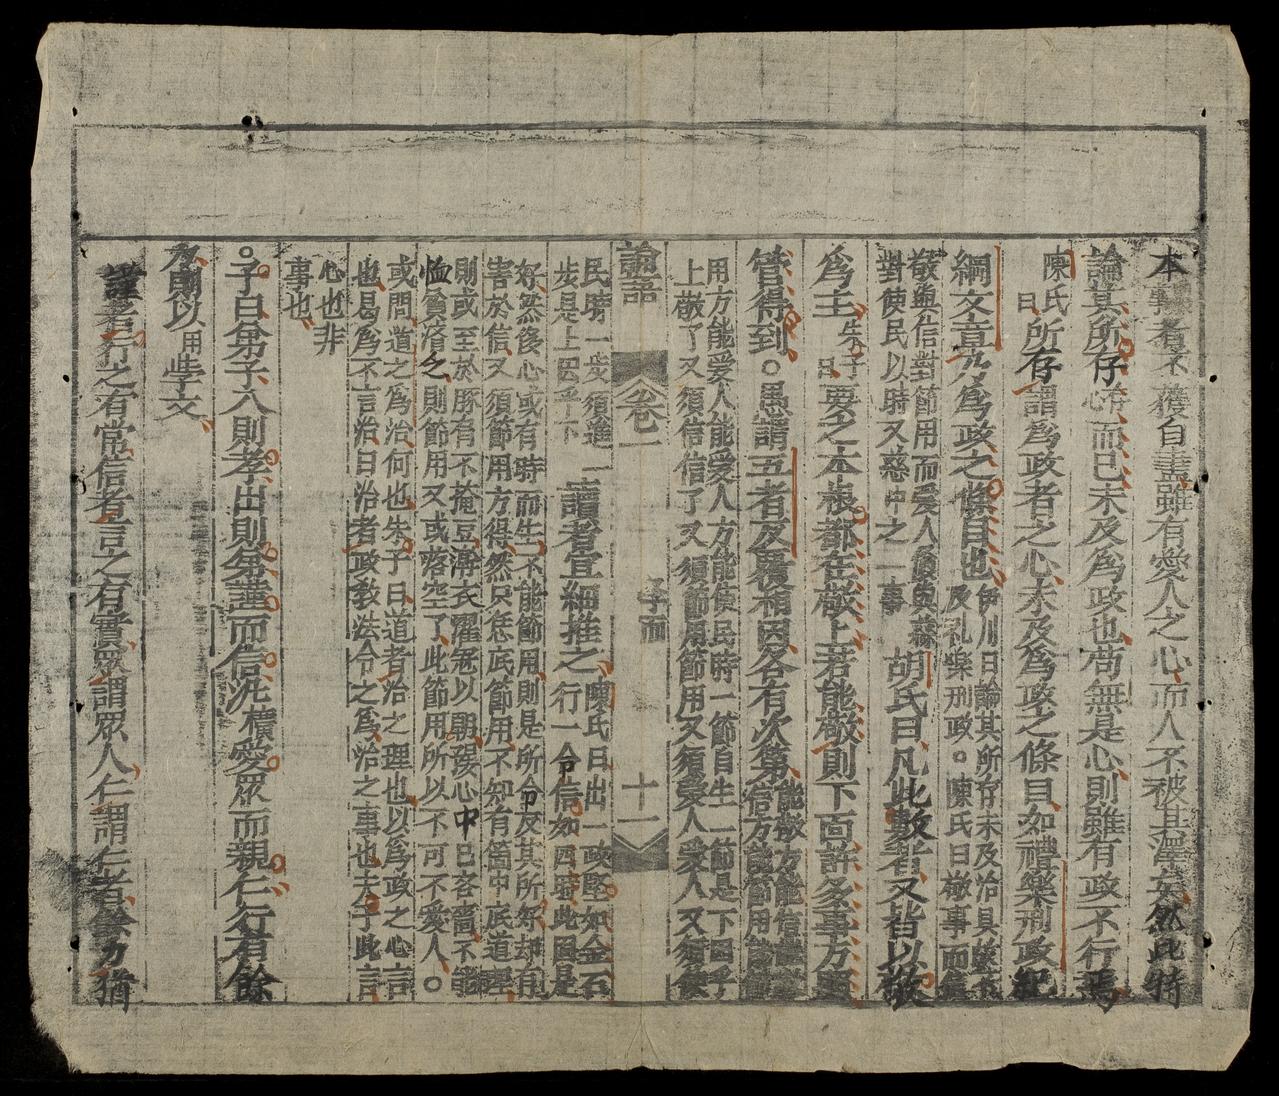 本者不獲自盡雖有愛人之心而人不被其澤矣然此特
論其所存而已未及為政也苟無是心則雖有政不行焉
陳氏曰所存謂為政者之心未及為政之條目如禮樂刑政紀
綱文章乃為政之條目也伊川曰論其所存未及治具故不
及礼樂刑政○陳氏曰敬事而信
敬與信對節用而愛人
對使民以時又慈中之一事胡氏曰凡此數者又皆以敬
為主朱子曰要之本根都在敬上若能敬則下面許多事方
管得到○愚謂五者反覆相因各有次第能敬方能信
信方能節用能節
用方能愛人能愛人方能使民時一節自生一節是下因乎
上敬了又須信信了又須節用節用又須愛人愛人又須使
論語 卷一 學而 十一
民時一步須進一
步是上因乎下讀者宜細推之陳氏曰出一政堅如金石
行一令信如四時此固是
好然後心或有時而生不能節用則是所令反其所好却有
害於信又須節用方得然只恁底節用不知有箇中底道理
則或至於豚肩不掩豆澣衣濯冠以朝殘心中已吝嗇不能
恤貧濟乏則節用又或落空了此節用所以不可不愛人○
或問道之為治何也朱子曰道者治之理也以為政之心言
也曷為不言治曰治者政教法令之為治之事也夫子此言
心也非
事也
○子曰弟子入則孝出則弟謹而信汎愛眾而親仁行有餘
力則以學文
謹者行之有常信者言之有實眾謂眾人仁謂仁者餘力猶